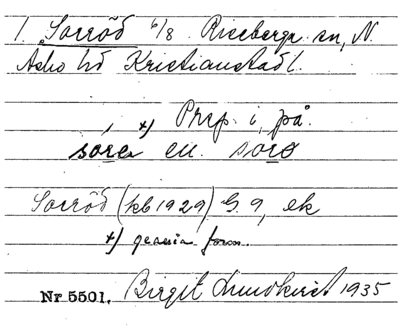 1. Sorröd 6/8 Riseberga sn, N.
Åsbo hd Kristianstad l.
x) Prep. i, på.
sǫrǝ en. sǫrǝ
Sorröd (kb 1929) G. 9, ek
x) genuin form.
Nr 5501. Birgit Lundkvist 1935